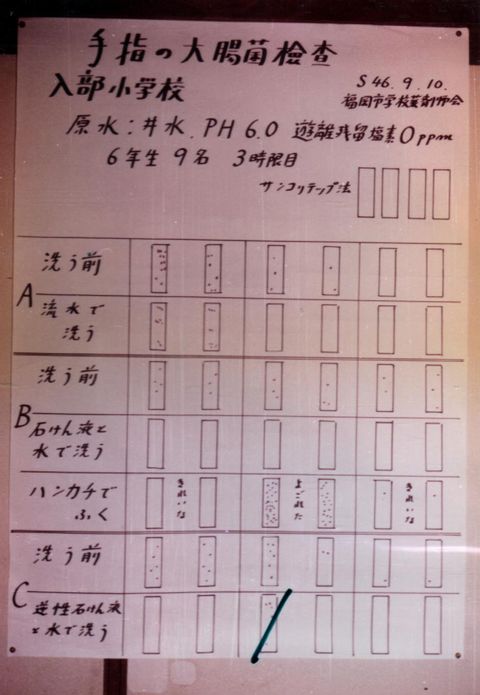 手指の大腸菌検査
入部小学校
S 46. 9. 10.
福岡市学校薬剤師会
原水:井水. PH 6.0 遊離残留塩素 0ppm
6年生 9名 3時限目
サンコリテップ法
洗う前
A
流水で
洗う
洗う前
B
石けん液と
水で洗う
ハンカチで
ふく
きれいな
よごれた
きれいな
洗う前
C
逆性石けん液
と水で洗う